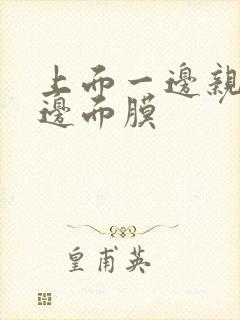 上而一邊親
邊而膜
皇甫英